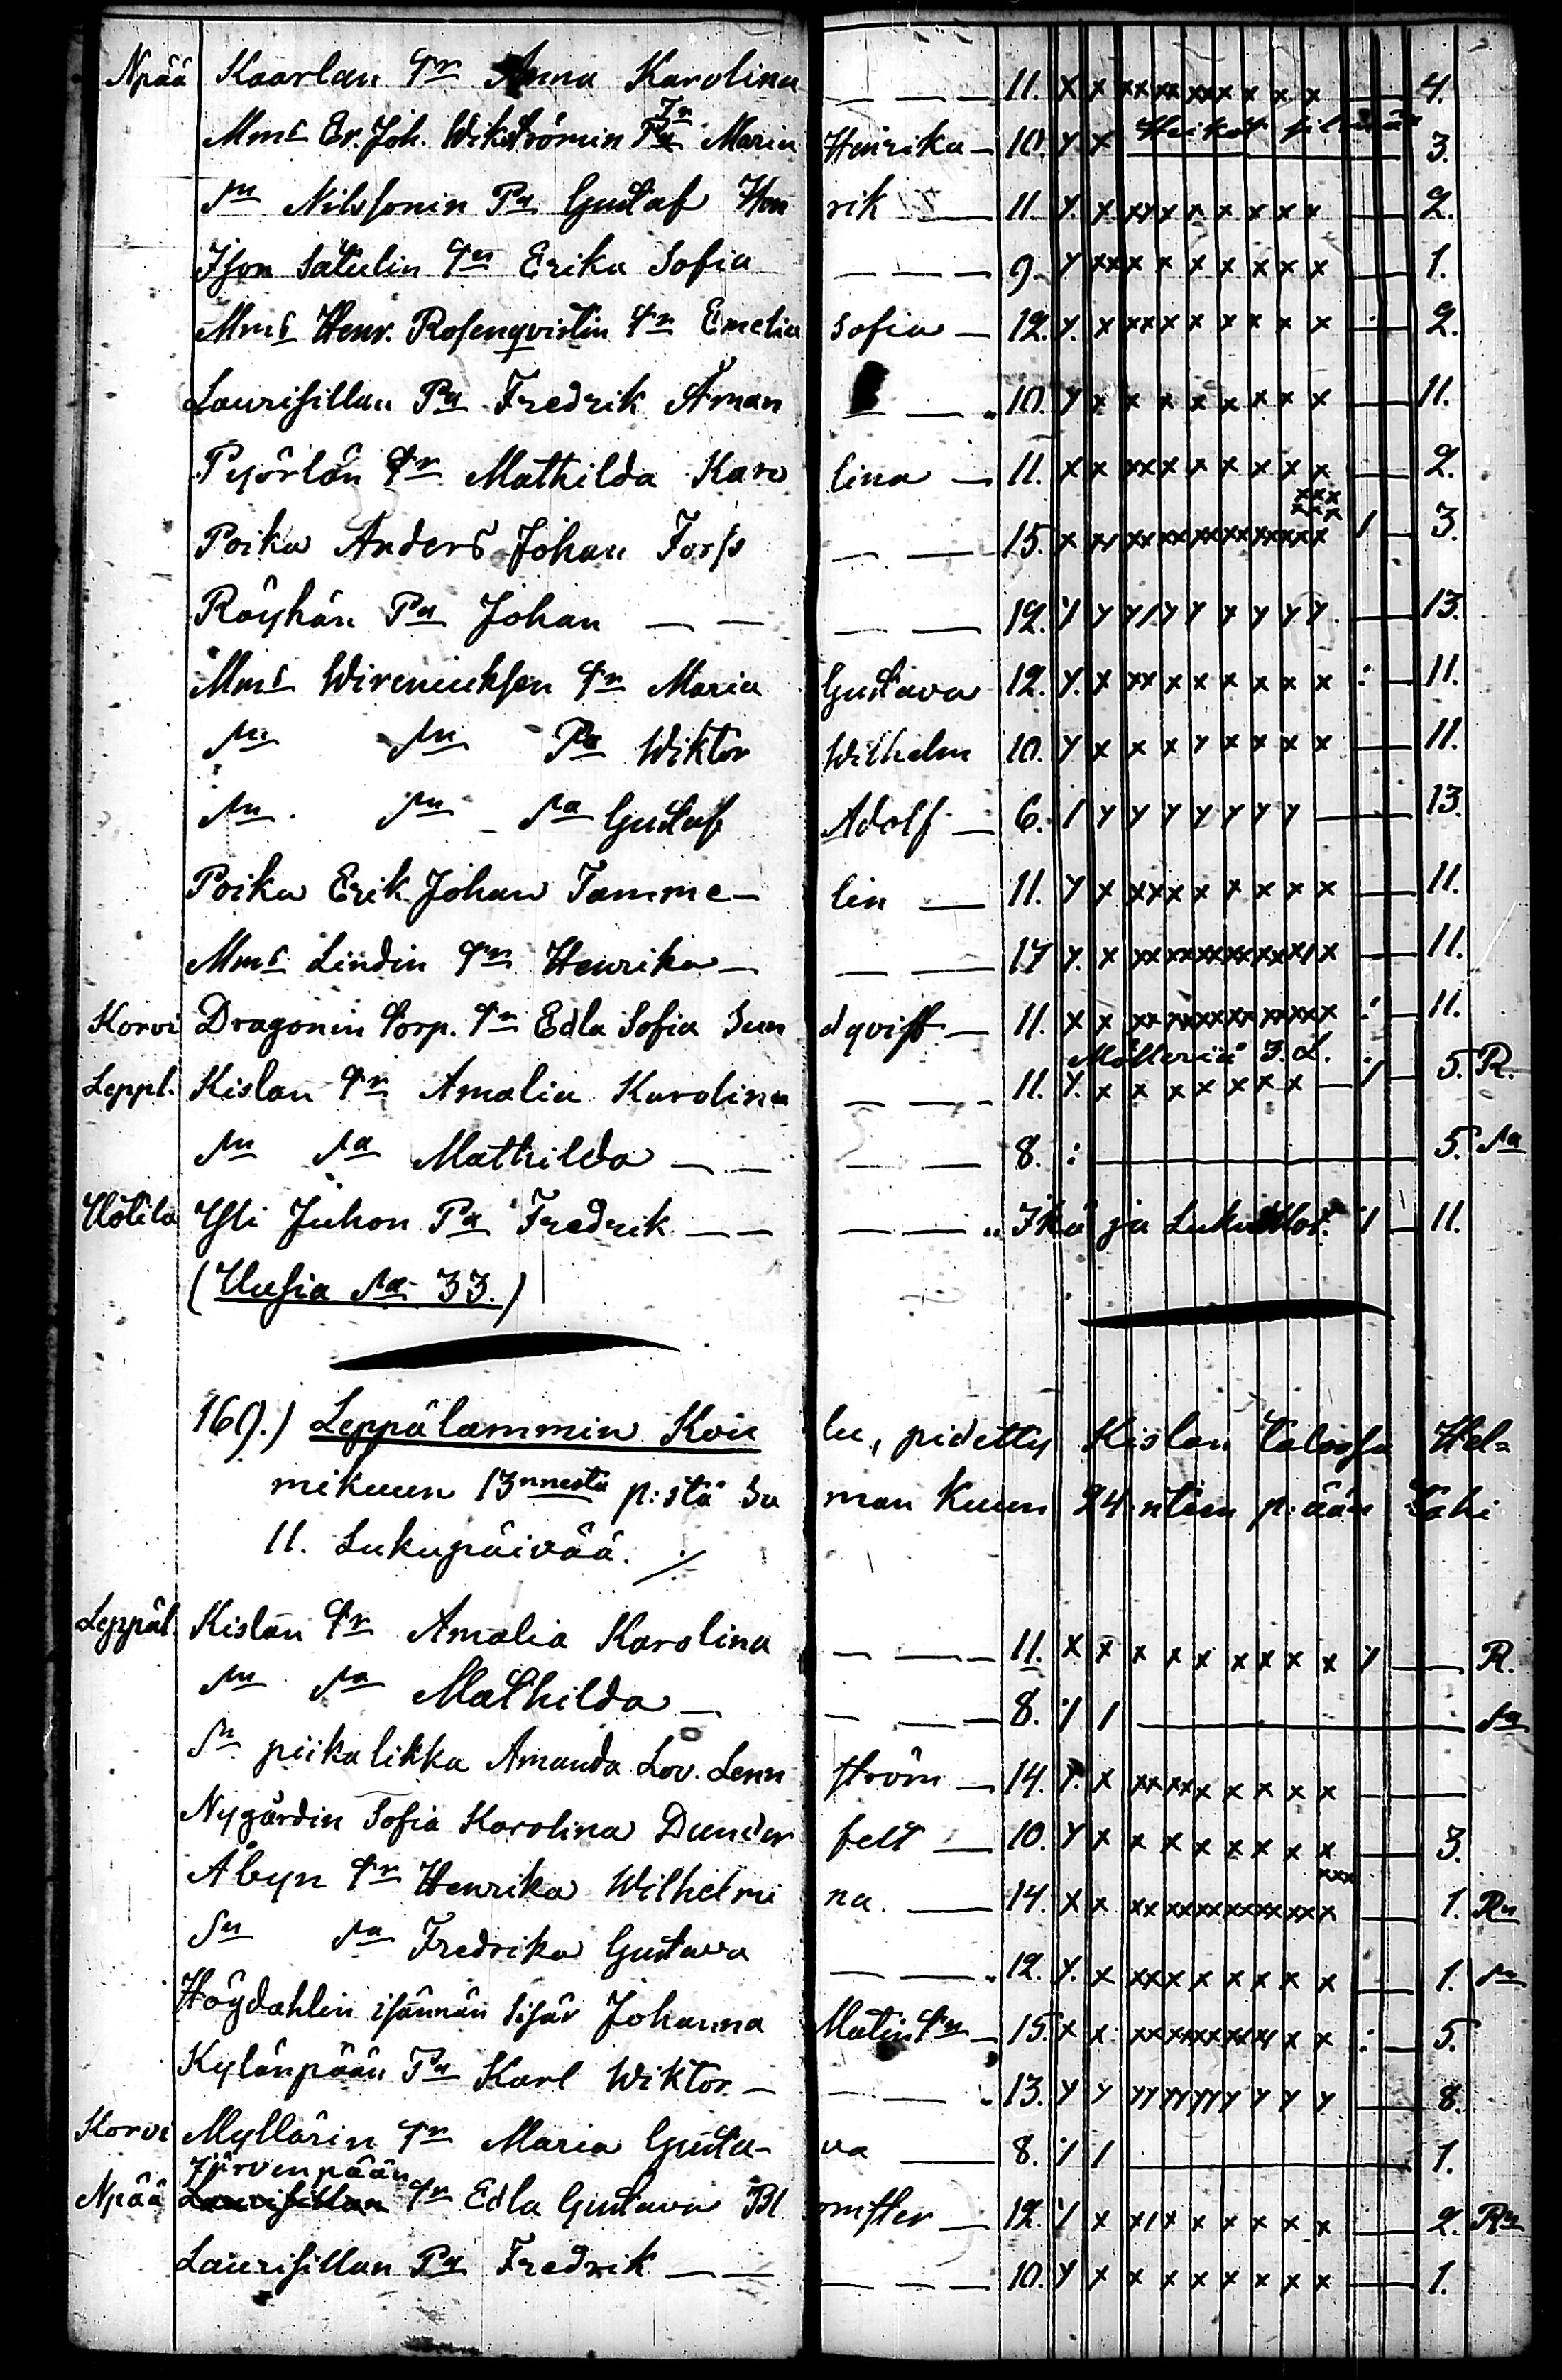 Npää Kaarlan Tr Anna Karolina — — — 11. x x xx xx xxx x x x — 4.
Mms Er. Joh. Wikströmin Tr Maria Henrika — 10. y x Heikot silmät 3.
sn Nilssonin Pa Gustaf Hen rik — 11. y. x xyx x x x x x — 2.
Ison Satulin Tr Erika Sofia — — — 9. y xxx x x x x x x — 1.
Mms Henr. Rosenqvistin Tr Emelia Sofia — 12. y. x xxx x x x x x — 2.
Laurisillan Pa Fredrik Åman — — 10. y x x x x x x x x — 11.
Pyörlän Tr Mathilda Karo lina — 11. x x xxx x x x x x — 2.
xxx
Poika Anders Johan Forss — — 15. x xx xx xx xx xx xxxx / — 3.
Röyhän Pa Johan — — — — 12. ⁒ y y/y y x y y y — 13.
Mms Wireniuksen Tr Maria Gustava 12. y. x xx x x x x x x : — 11.
sn sn Pa Wiktor Wilhelm 10. y x x x y x x x x — 11.
sn sn sa Gustaf Adolf — 6. / y y y y y y y — 13.
Poika Erik Johan Tamme- lin — 11. y x xxx x x x x x — 11.
Mms Lindin Tr Henrika — — — 17 y. x xx xx xx xx xx x — 11.
Korvi Dragonin torp. Tr Edla Sofia Sun dqvist — 11. x x xx xx xx xx xx x : — 11.
Leppl. Kislan Tr Amalia Karolina — — 11. y. x x x x x x x — / — 5. R.
sn sa Mathilda — — — — 8. : — 5. sa
Yli Juhon Pa Fredrik — — — — Ikä ja Luku / — 11.
(Uusia sa 33.)
169.) Leppälammin Kou lu, pidetty Kislan talossa Hel=
mikuun 13nnestä p:stä sa man Kuun 24:ntään p:ään Tähi
11. Lukupäivää. ⁒
Leppäl. Kislan Tr Amalia Karolina — — — 11. x x x x x x x x x / — R.
sn sa Mathilda — — — — 8. ⁒ / — sa
sn piikalikka Amanda Lov. Lenn ström — 14. y. x xx xx x x x x x —
Nygårdin Sofia Karolina Dunder felt — 10. y x x x x x x x x — 3.
xxx
Åbyn Tr Henrika Wilhelmi na. — 14. x x xx xx xx xx xx x — 1. Ra
sn sa Fredrika Gustava — — 12. y. x xxx x x x x x — 1. sa
Högdahlin isännän Sisär Johanna Matin Tr — 15. x x xx xx xx xy x x : — 5.
Kylänpään Pa Karl Wiktor — — — 13. y y yy yy yy y y y — 8.
Korvi Myllärin Tr Maria Gusta- va — 8. ⁒ / — 1.
Järvenpään
Npää Laurisillan Tr Edla Gustava Bl omster — 12. ⁒ x x/x x x x x x — 2. Ra
Laurisillan Pa Fredrik — — — — — 10. y x x x x x x x x — 1.